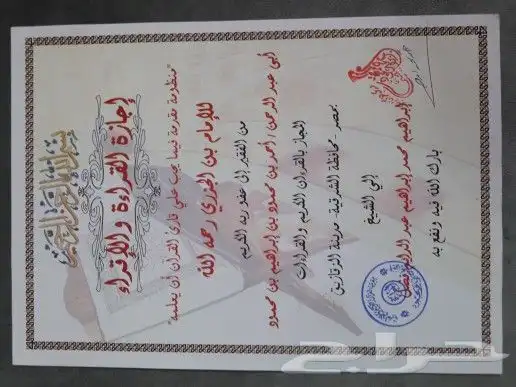 بسم الله الرحمن الرحيم
إجازة القراءة والإقراء
"منظومة مقدمة فيما يجب علي قارئ القرآن أن يعلمه"
للإمام بن الجزري رحمه الله
من الفقير إلى عفو ربه الكريم
أبي عبد الرحمن / أحمد بن محمود بن إبراهيم بن محمود
المجاز بالقرءان الكريم والقراءات
بمصر - محافظة الشرقية - مدينة الزقازيق
إلي الشيخ
إبراهيم محمد إبراهيم عبد
بارك الله فيه ونفع به
حراج